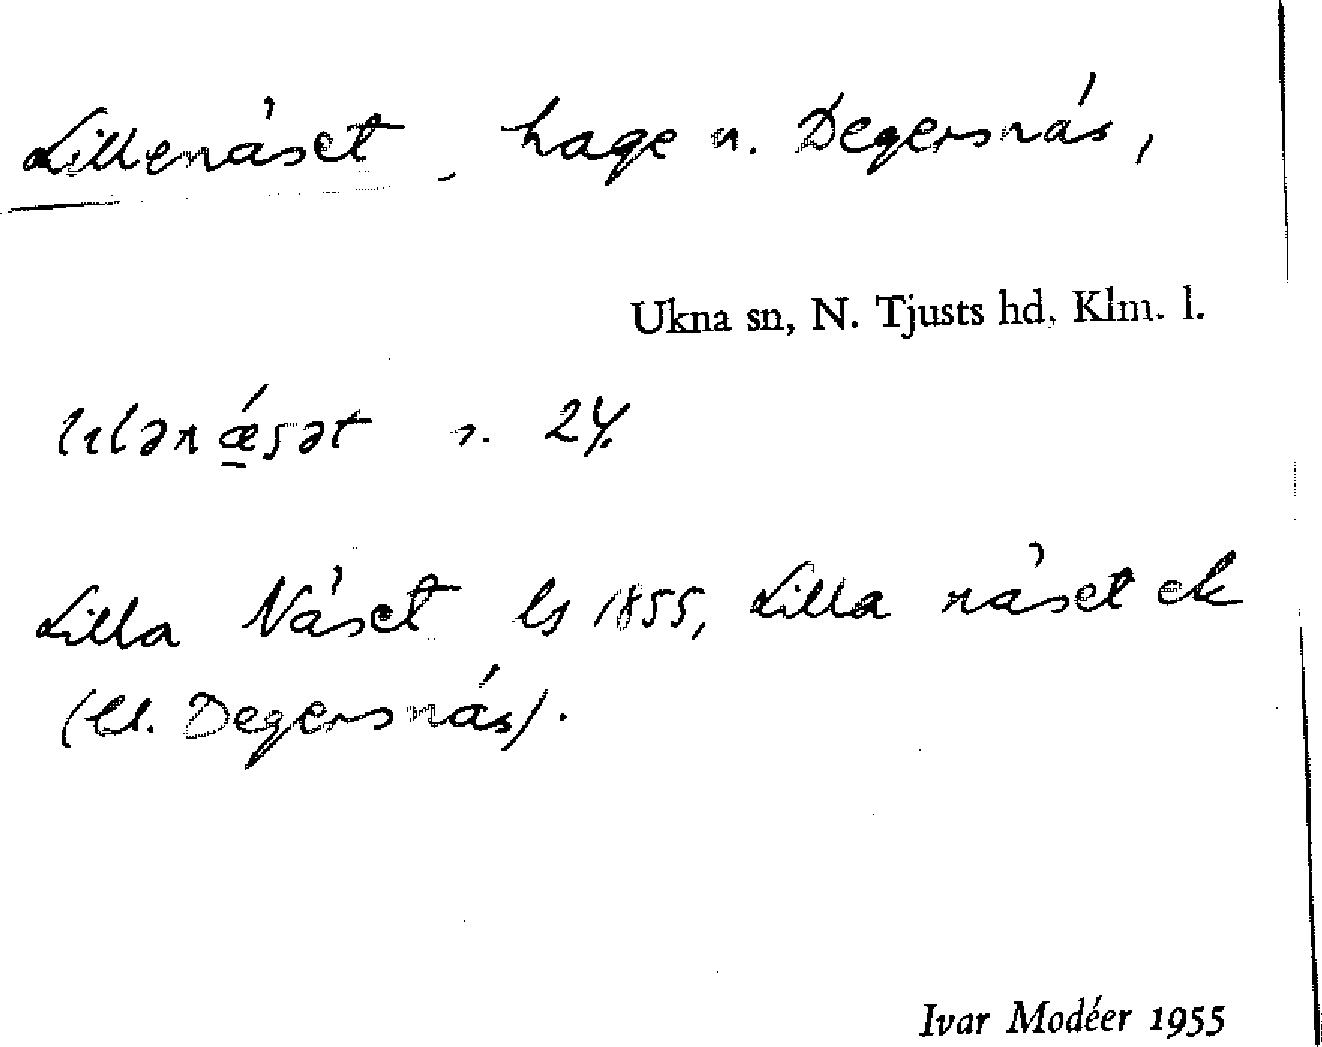 Lillenäset, hage u. Degersnäs,
Ukna sn, N. Tjusts hd, Klm. l.
n. 24/.
Lilla Näset ls 1855, Lilla näset ek
(Degersnäs).
Ivar Modéer 1955